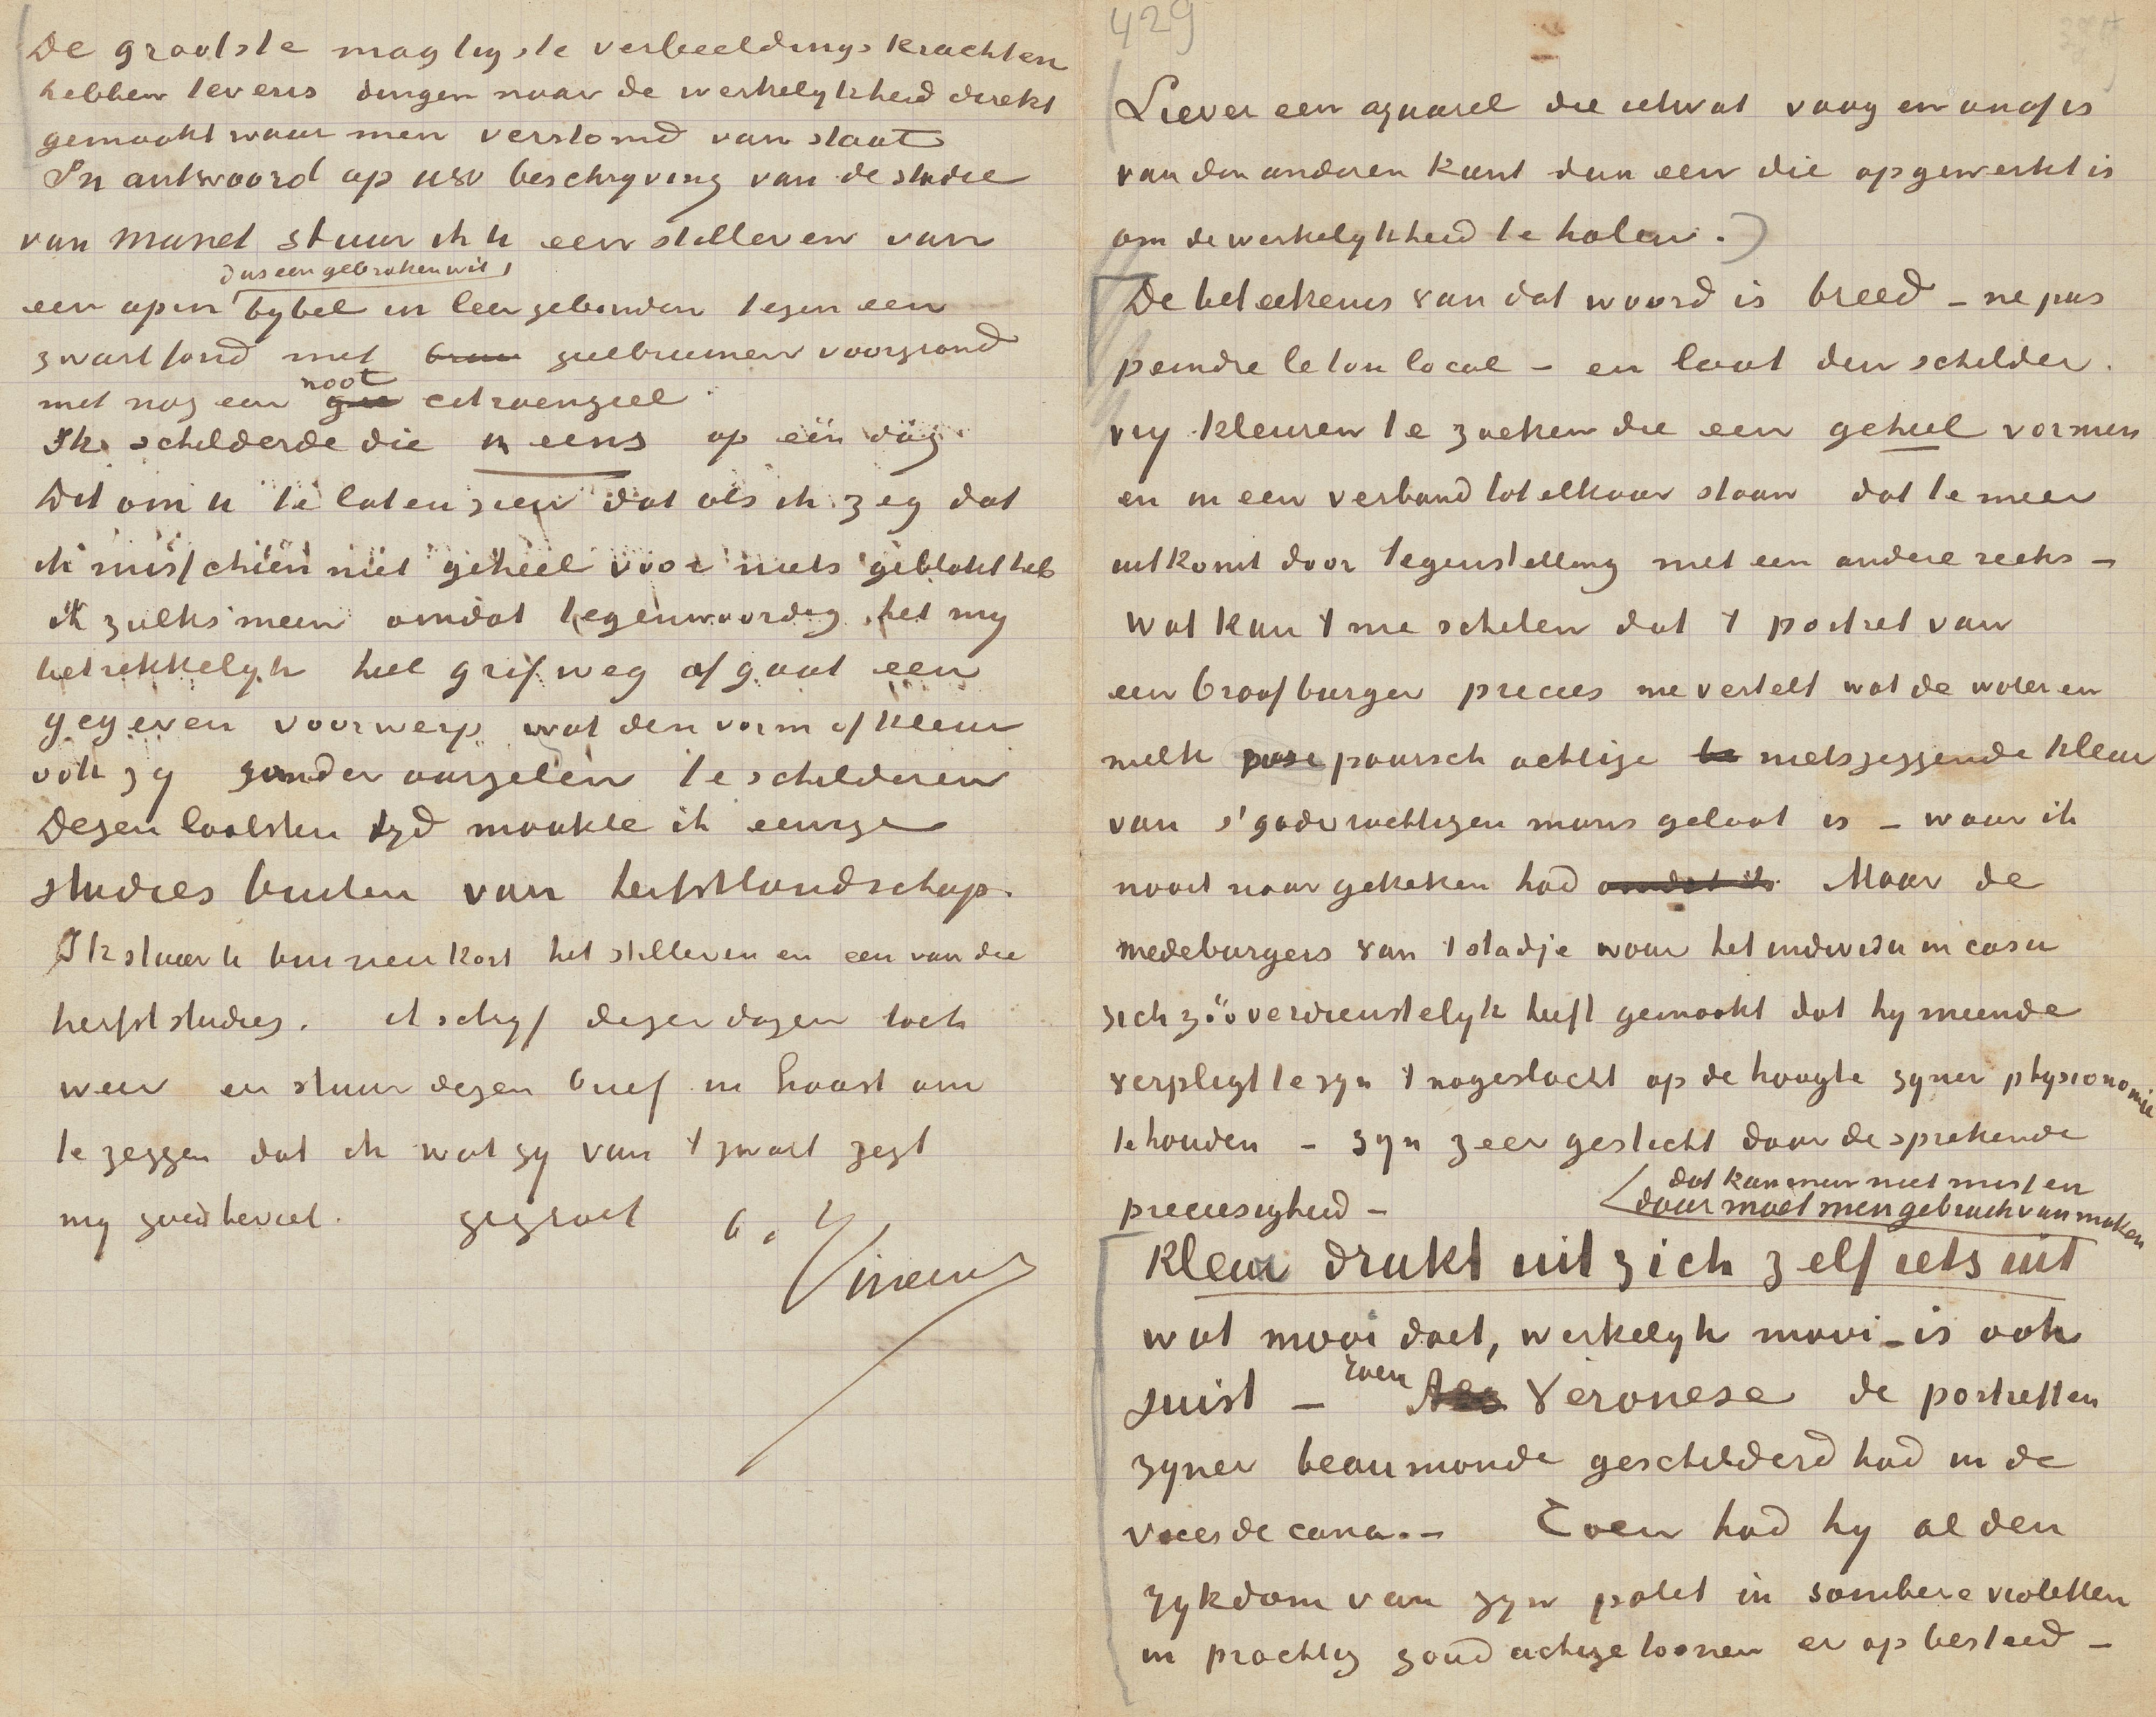 De grootste magtigste verbeeldingskrachten
hebben tevens dingen naar de werkelykheid direkt
gemaakt waar men verstomd van staat
In antwoord op uw beschryving van de studie
van Manet stuur ik u een stilleven van
dus een gebroken wit,
een open bybel in leer gebonden tegen een
zwart fond met geelbruinen voorgrond
noot
met nog een citroengeel.
Ik schilderde die in eens op een dag.
Dit om u te laten zien dat als ik zeg dat
ik misschien niet geheel voor niets geblokt heb
ik zulks meen omdat tegenwoordig het my
betrekkelyk heel grif weg afgaat een
gegeven voorwerp wat den vorm of kleur
ook zy zonder aarzelen te schilderen
Dezen laatsten tyd maakte ik eenige
studies buiten van herfstlandschap.
Ik stuur u binnenkort het stilleven en een van die
herfststudies. ik schryf dezer dagen toch
weer en stuur dezen brief in haast om
te zeggen dat ik wat gy van 't zwart zegt
my goed beviel. gegroet
Vincent
429
Liever een aquarel die ietwat vaag en onaf is
van den anderen kant dan een die opgewerkt is
om de werkelykheid te halen.)
De beteekenis van dat woord is breed – ne pas
peindre le ton local – en laat den schilder
vry kleuren te zoeken die een geheel vormen
en in een verband tot elkaar staan dat te meer
uitkomt door tegenstelling met een andere reeks –
Wat kan 't me schelen dat 't portret van
een braaf burger precies me vertelt wat de water en
melk paarsch achtige nietszeggende kleur
van s' godvruchtigen mans gelaat is – waar ik
nooit naar gekeken had omdat ik Maar de
medeburgers van 't stadje waar het individu in casu
zich zóó verdienstelyk heeft gemaakt dat hy meende
verpligt te zyn 't nageslacht op de hoogte zyner physionomie
te houden – zyn zeer gesticht door de sprekende
dat kan men niet missen
preciesigheid – daar moet men gebruik van maken
Kleur drukt uit zich zelf iets uit
wat mooi doet, werkelyk mooi – is ook
toen
juist – Veronese de portretten
zyner beau monde geschilderd had in de
noces de cana. – Toen had hy al den
rykdom van zyn palet in sombere violetten
in prachtig goudachtige toonen er op besteed –